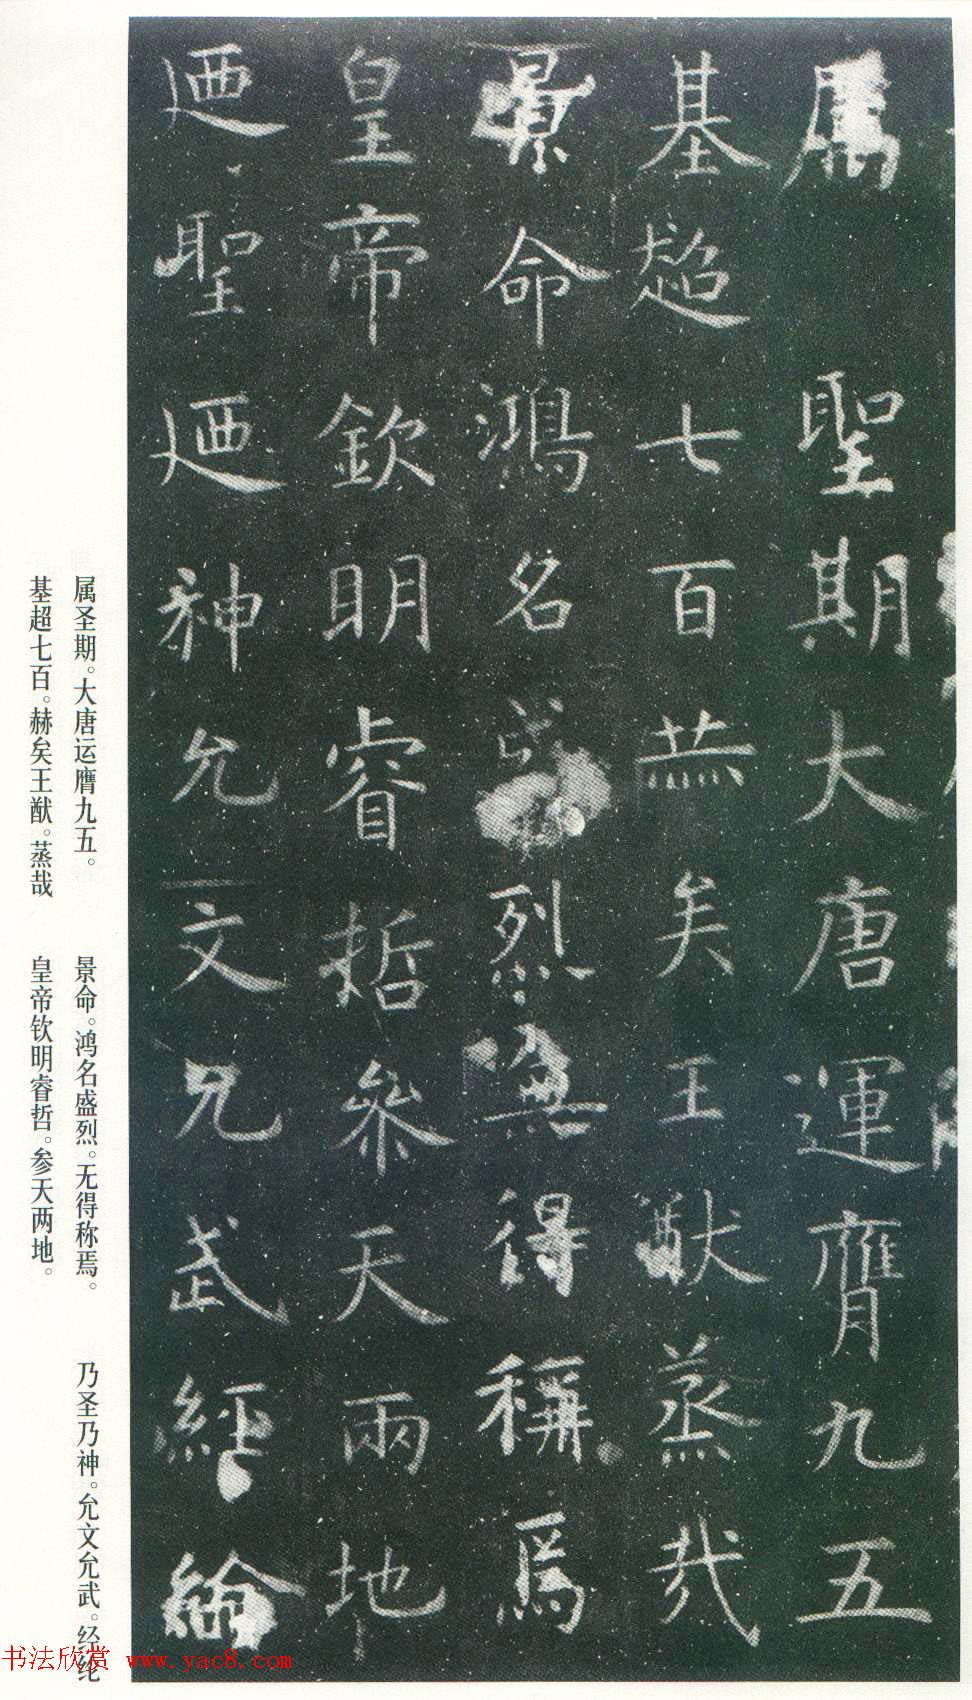 属聖期大唐運膺九五
基超七百赫矣王猷蒸哉
景命鴻名盛烈無得稱焉
皇帝欽明睿哲叅天兩地
迺聖迺神允文允武經綸
属圣期。大唐运膺九五。
基超七百。赫矣王猷。蒸哉
景命。鸿名盛烈。无得称焉。
皇帝钦明睿哲。参天两地。
乃圣乃神。允文允武。经纶
书法欣赏 www.yac8.com